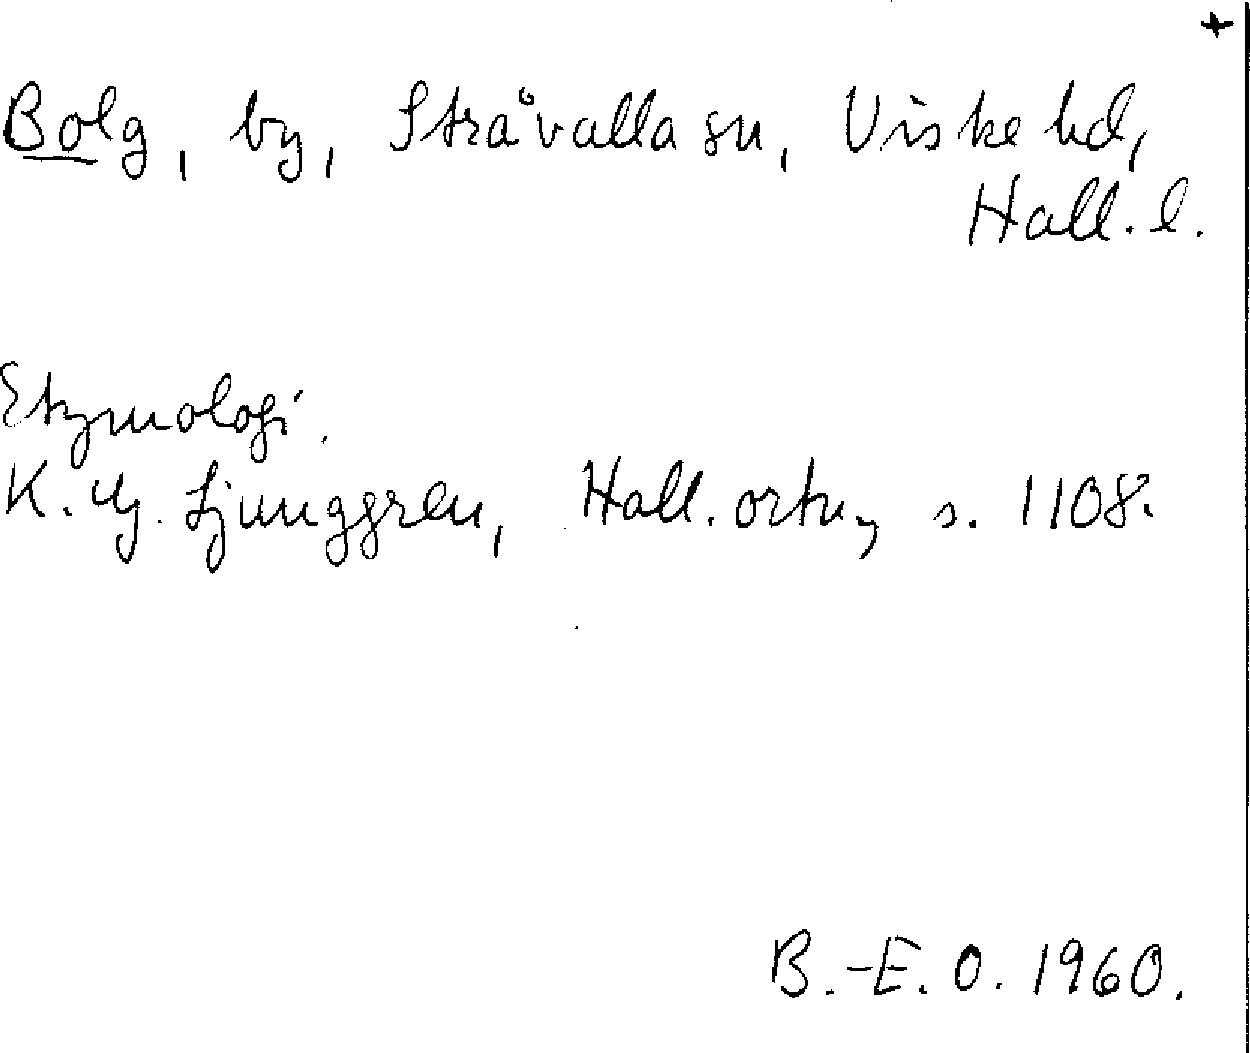 +
Bolg, by, Stråvalla sn, Viske hd,
Hall. l.
Etymologi.
K. G. Ljunggren, Hall. ortn., s. 1108.
B.-E. O. 1960.